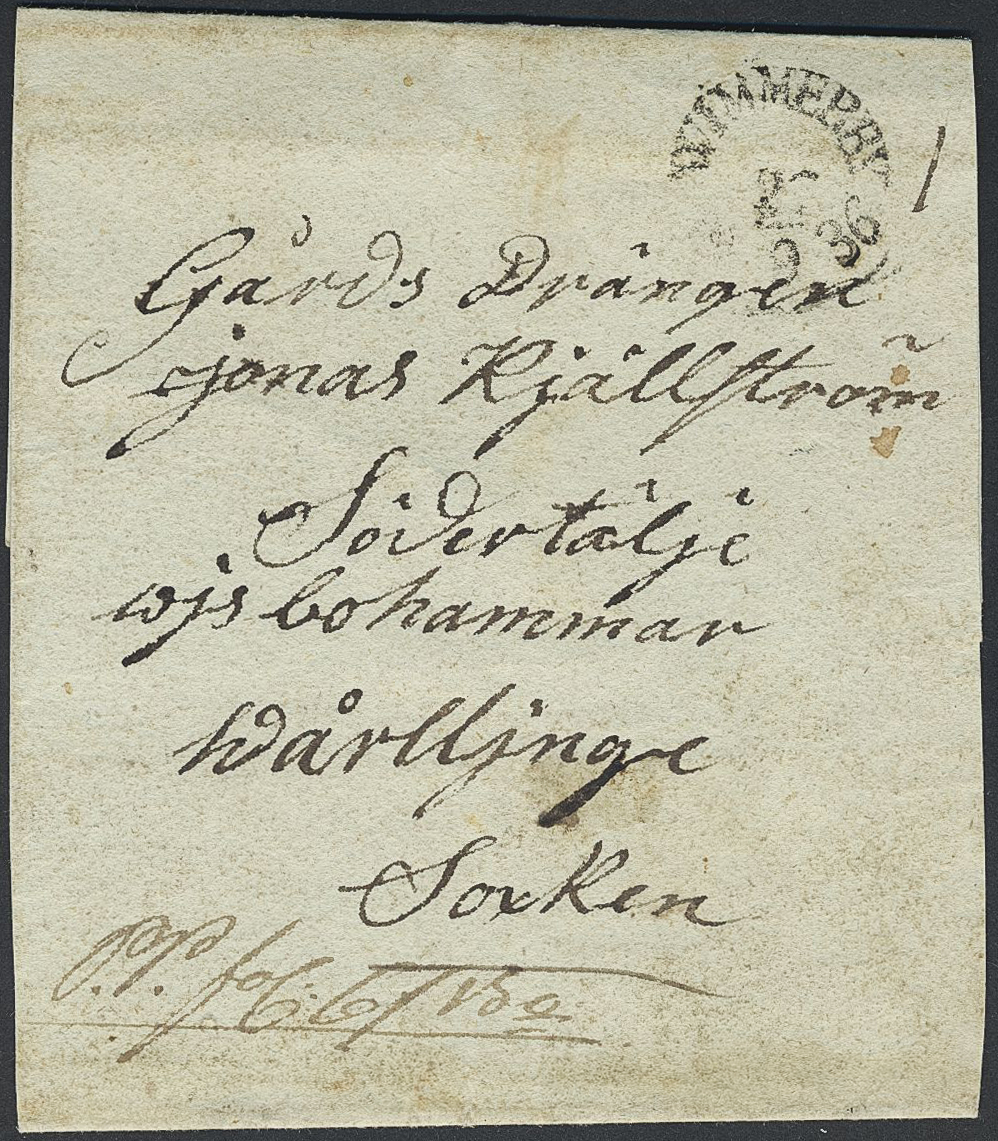 WIMMERBY
1
Gårds Drängen
Jonas Kjällström
Södertälje
wjsbohammar
Wårlljnge
Socken
P.P.